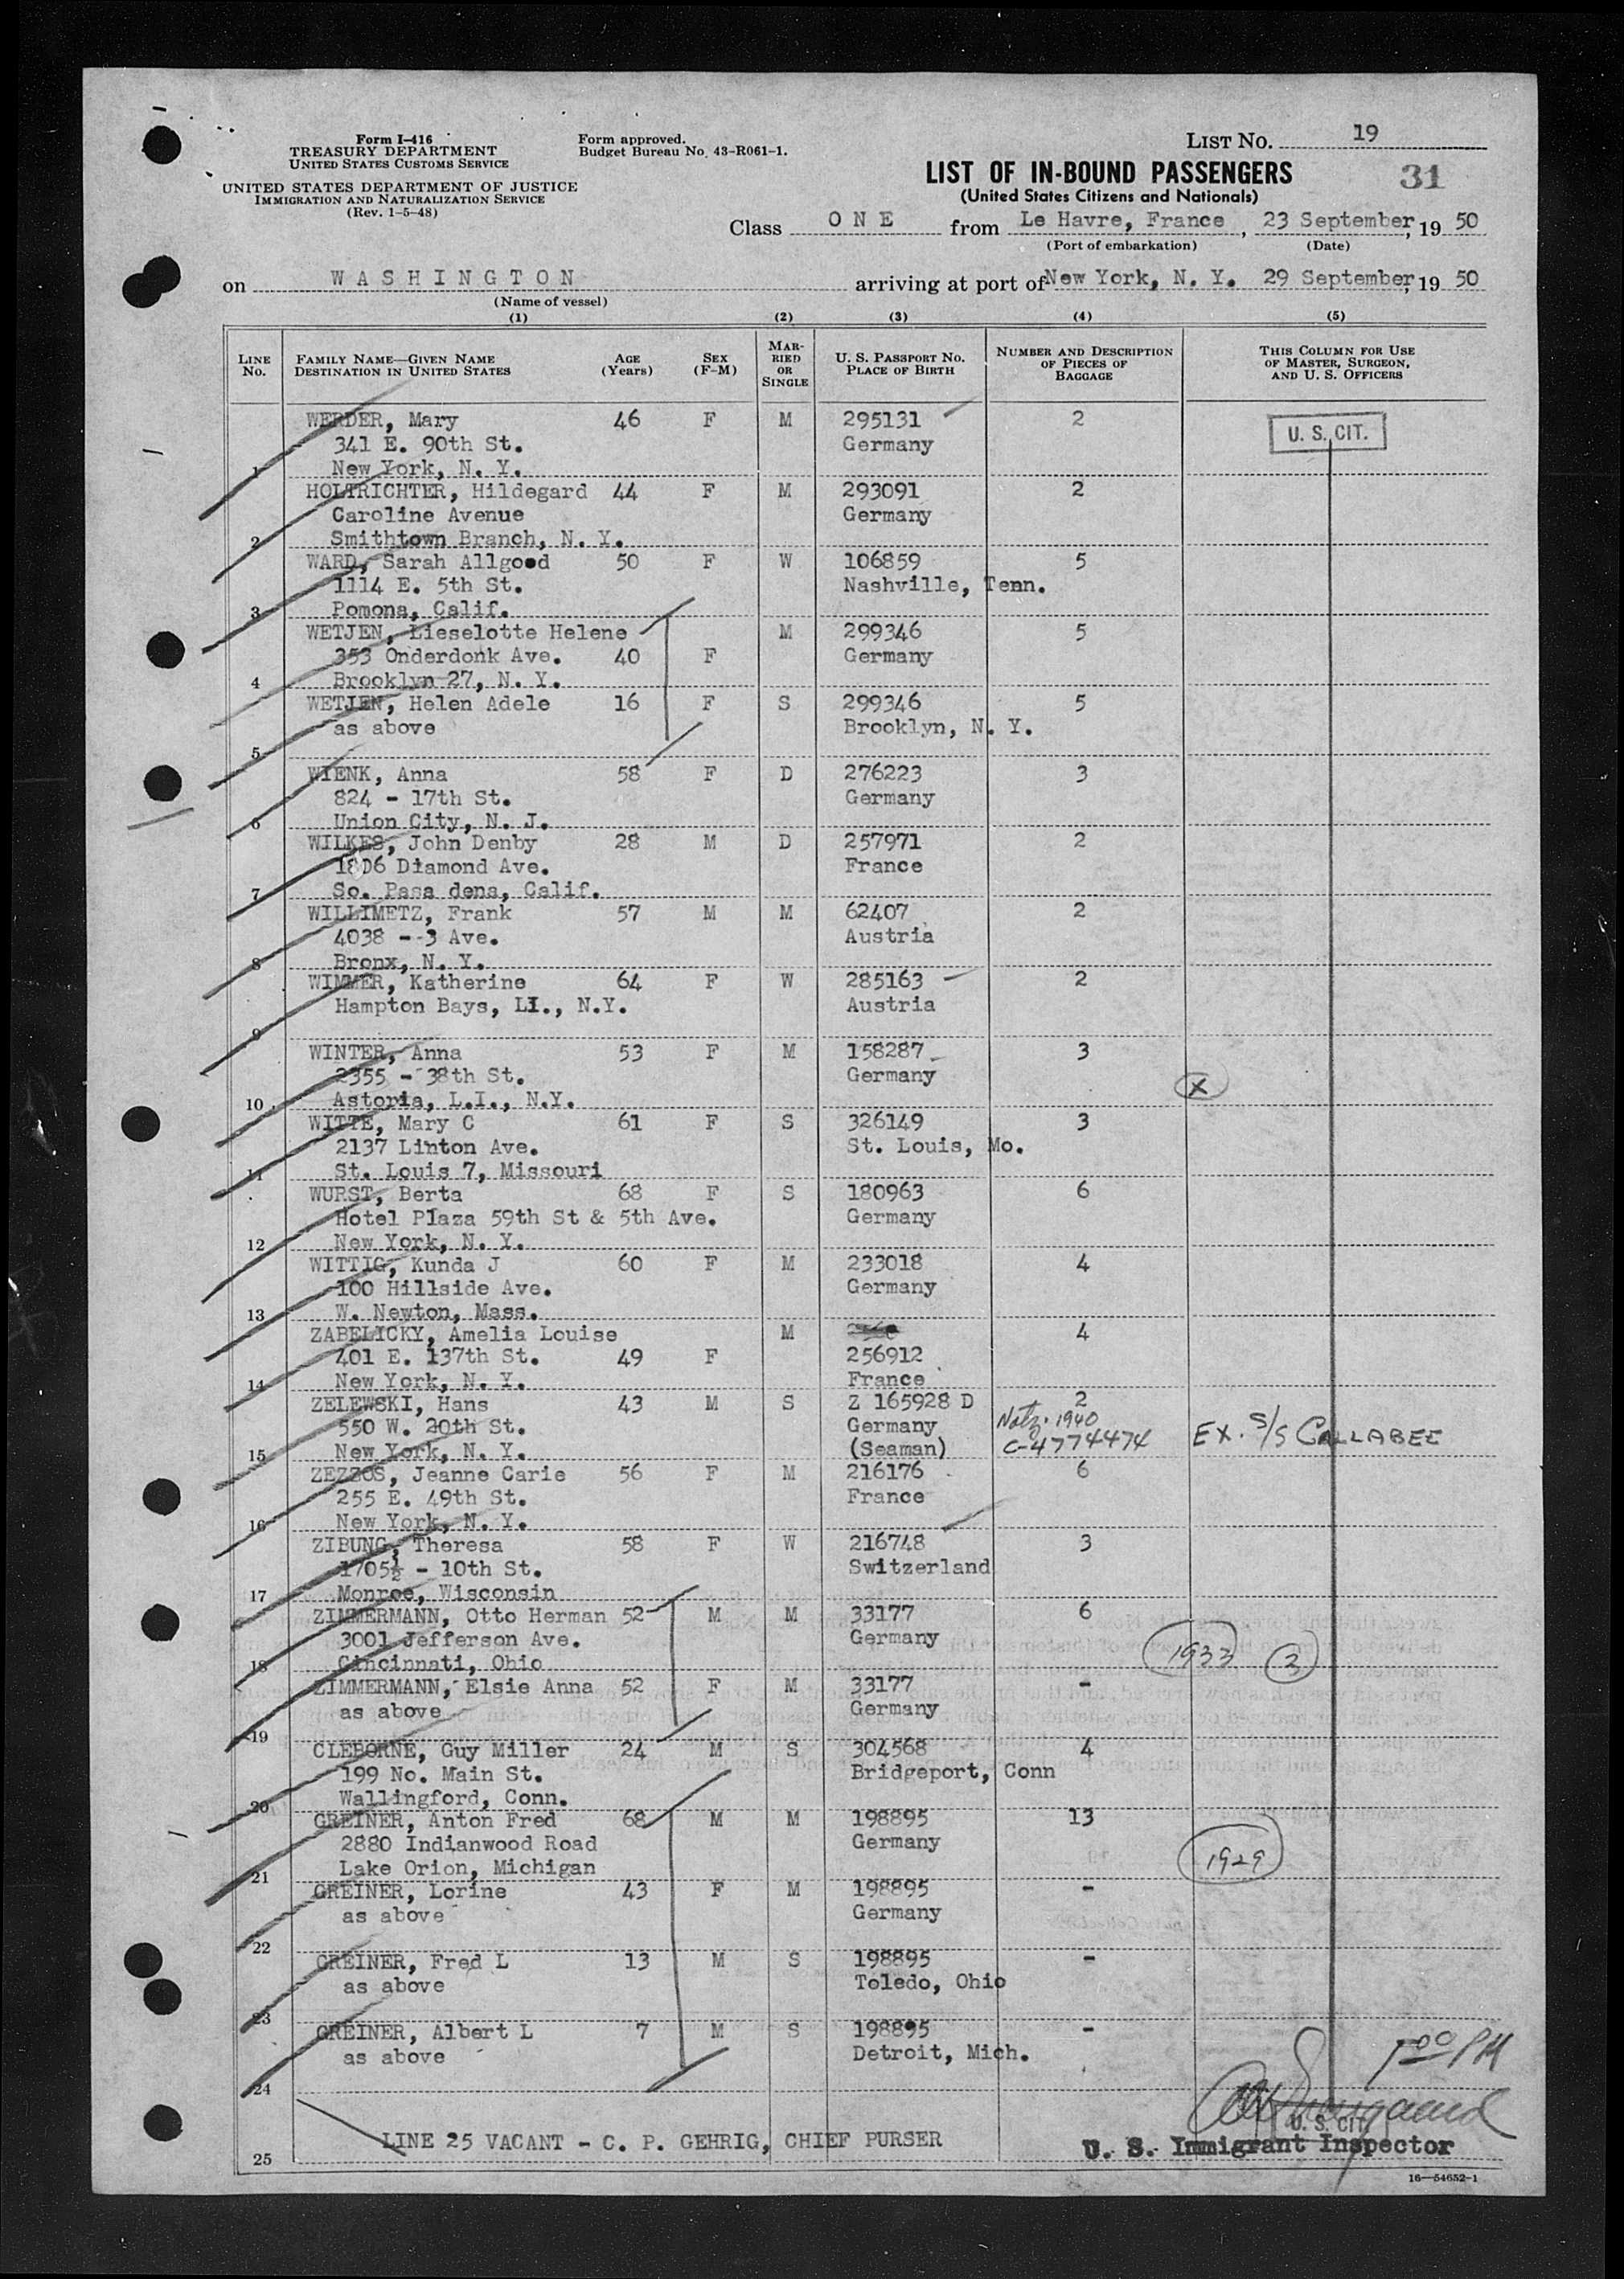 Form I-416
TREASURY DEPARTMENT
UNITED STATES CUSTOMS SERVICE
UNITED STATES DEPARTMENT OF JUSTICE
IMMIGRATION AND NATURALIZATION SERVICE
(Rev. 1-5-48)
Form approved.
Budget Bureau No. 43-R061-1.
LIST No. 19
LIST OF IN-BOUND PASSENGERS
31
(United States Citizens and Nationals)
Class O N E from Le Havre, France, 23 September, 19 50
(Port of embarkation) (Date)
on W A S H I N G T O N arriving at port of New York, N. Y. 29 September, 19 50
(Name of vessel)
(1) (2) (3) (4) (5)
LINE No. FAMILY NAME—GIVEN NAME DESTINATION IN UNITED STATES AGE (Years) SEX (F-M) MARRIED OR SINGLE U. S. PASSPORT No. PLACE OF BIRTH NUMBER AND DESCRIPTION OF PIECES OF BAGGAGE THIS COLUMN FOR USE OF MASTER, SURGEON, AND U. S. OFFICERS
WERDER, Mary 46 F M 295131 2 U. S. CIT.
341 E. 90th St. Germany
1 New York, N. Y.
HOLTRICHTER, Hildegard 44 F M 293091 2
Caroline Avenue Germany
2 Smithtown Branch, N. Y.
WARD, Sarah Allgood 50 F W 106859 5
1114 E. 5th St. Nashville, Tenn.
3 Pomona, Calif.
WETJEN, Lieselotte Helene M 299346 5
353 Onderdonk Ave. 40 F Germany
4 Brooklyn 27, N. Y.
WETJEN, Helen Adele 16 F S 299346 5
as above Brooklyn, N. Y.
5
WIENK, Anna 58 F D 276223 3
824 - 17th St. Germany
6 Union City, N. J.
WILKES, John Denby 28 M D 257971 2
1806 Diamond Ave. France
7 So. Pasa dena, Calif.
WILLIMETZ, Frank 57 M M 62407 2
4038 - 3 Ave. Austria
8 Bronx, N. Y.
WIMMER, Katherine 64 F W 285163 2
Hampton Bays, LI., N.Y. Austria
9
WINTER, Anna 53 F M 158287 3
2355 - 38th St. Germany X
10 Astoria, L.I., N.Y.
WITTE, Mary C 61 F S 326149 3
2137 Linton Ave. St. Louis, Mo.
11 St. Louis 7, Missouri
WURST, Berta 68 F S 180963 6
Hotel Plaza 59th St & 5th Ave. Germany
12 New York, N. Y.
WITTIG, Kunda J 60 F M 233018 4
100 Hillside Ave. Germany
13 W. Newton, Mass.
ZABELICKY, Amelia Louise M 4
401 E. 137th St. 49 F 256912
14 New York, N. Y. France
ZELEWSKI, Hans 43 M S Z 165928 D 2
550 W. 20th St. Germany Natz. 1940
15 New York, N. Y. (Seaman) C-4774474 EX. S/S CALLABEE
ZEZZOS, Jeanne Carie 56 F M 216176 6
255 E. 49th St. France
16 New York, N. Y.
ZIBUNG, Theresa 58 F W 216748 3
1705½ - 10th St. Switzerland
17 Monroe, Wisconsin
ZIMMERMANN, Otto Herman 52 M M 33177 6
3001 Jefferson Ave. Germany 1933 3
18 Cincinnati, Ohio
ZIMMERMANN, Elsie Anna 52 F M 33177 -
as above Germany
19
CLEBORNE, Guy Miller 24 M S 304568 4
199 No. Main St. Bridgeport, Conn
20 Wallingford, Conn.
GREINER, Anton Fred 68 M M 198895 13
2880 Indianwood Road Germany
21 Lake Orion, Michigan 1929
GREINER, Lorine 43 F M 198895 -
as above Germany
22
GREINER, Fred L 13 M S 198895 -
as above Toledo, Ohio
23
GREINER, Albert L 7 M S 198895 -
as above Detroit, Mich.
24 1 00 PM
U. S. CIT.
25 LINE 25 VACANT - C. P. GEHRIG, CHIEF PURSER U. S. Immigrant Inspector
16—54652-1